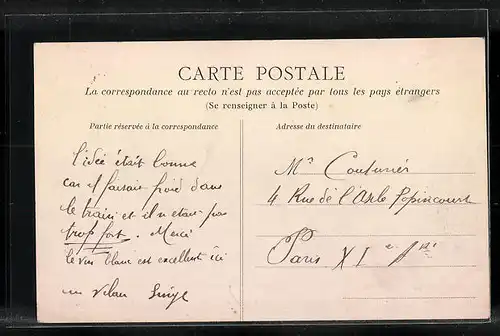 CARTE POSTALE
La correspondance au recto n'est pas acceptée par tous les pays étrangers
(Se renseigner à la Poste)
Partie réservée à la correspondance
Adresse du destinataire
l'idée était bonne
car il faisais froid dans
le train et il n etait pas
trop fort. Merci
le vin blanc est excellent ici
un
Mr Couturier
4 Rue de l'Asile Popincourt
Paris XI e Arr